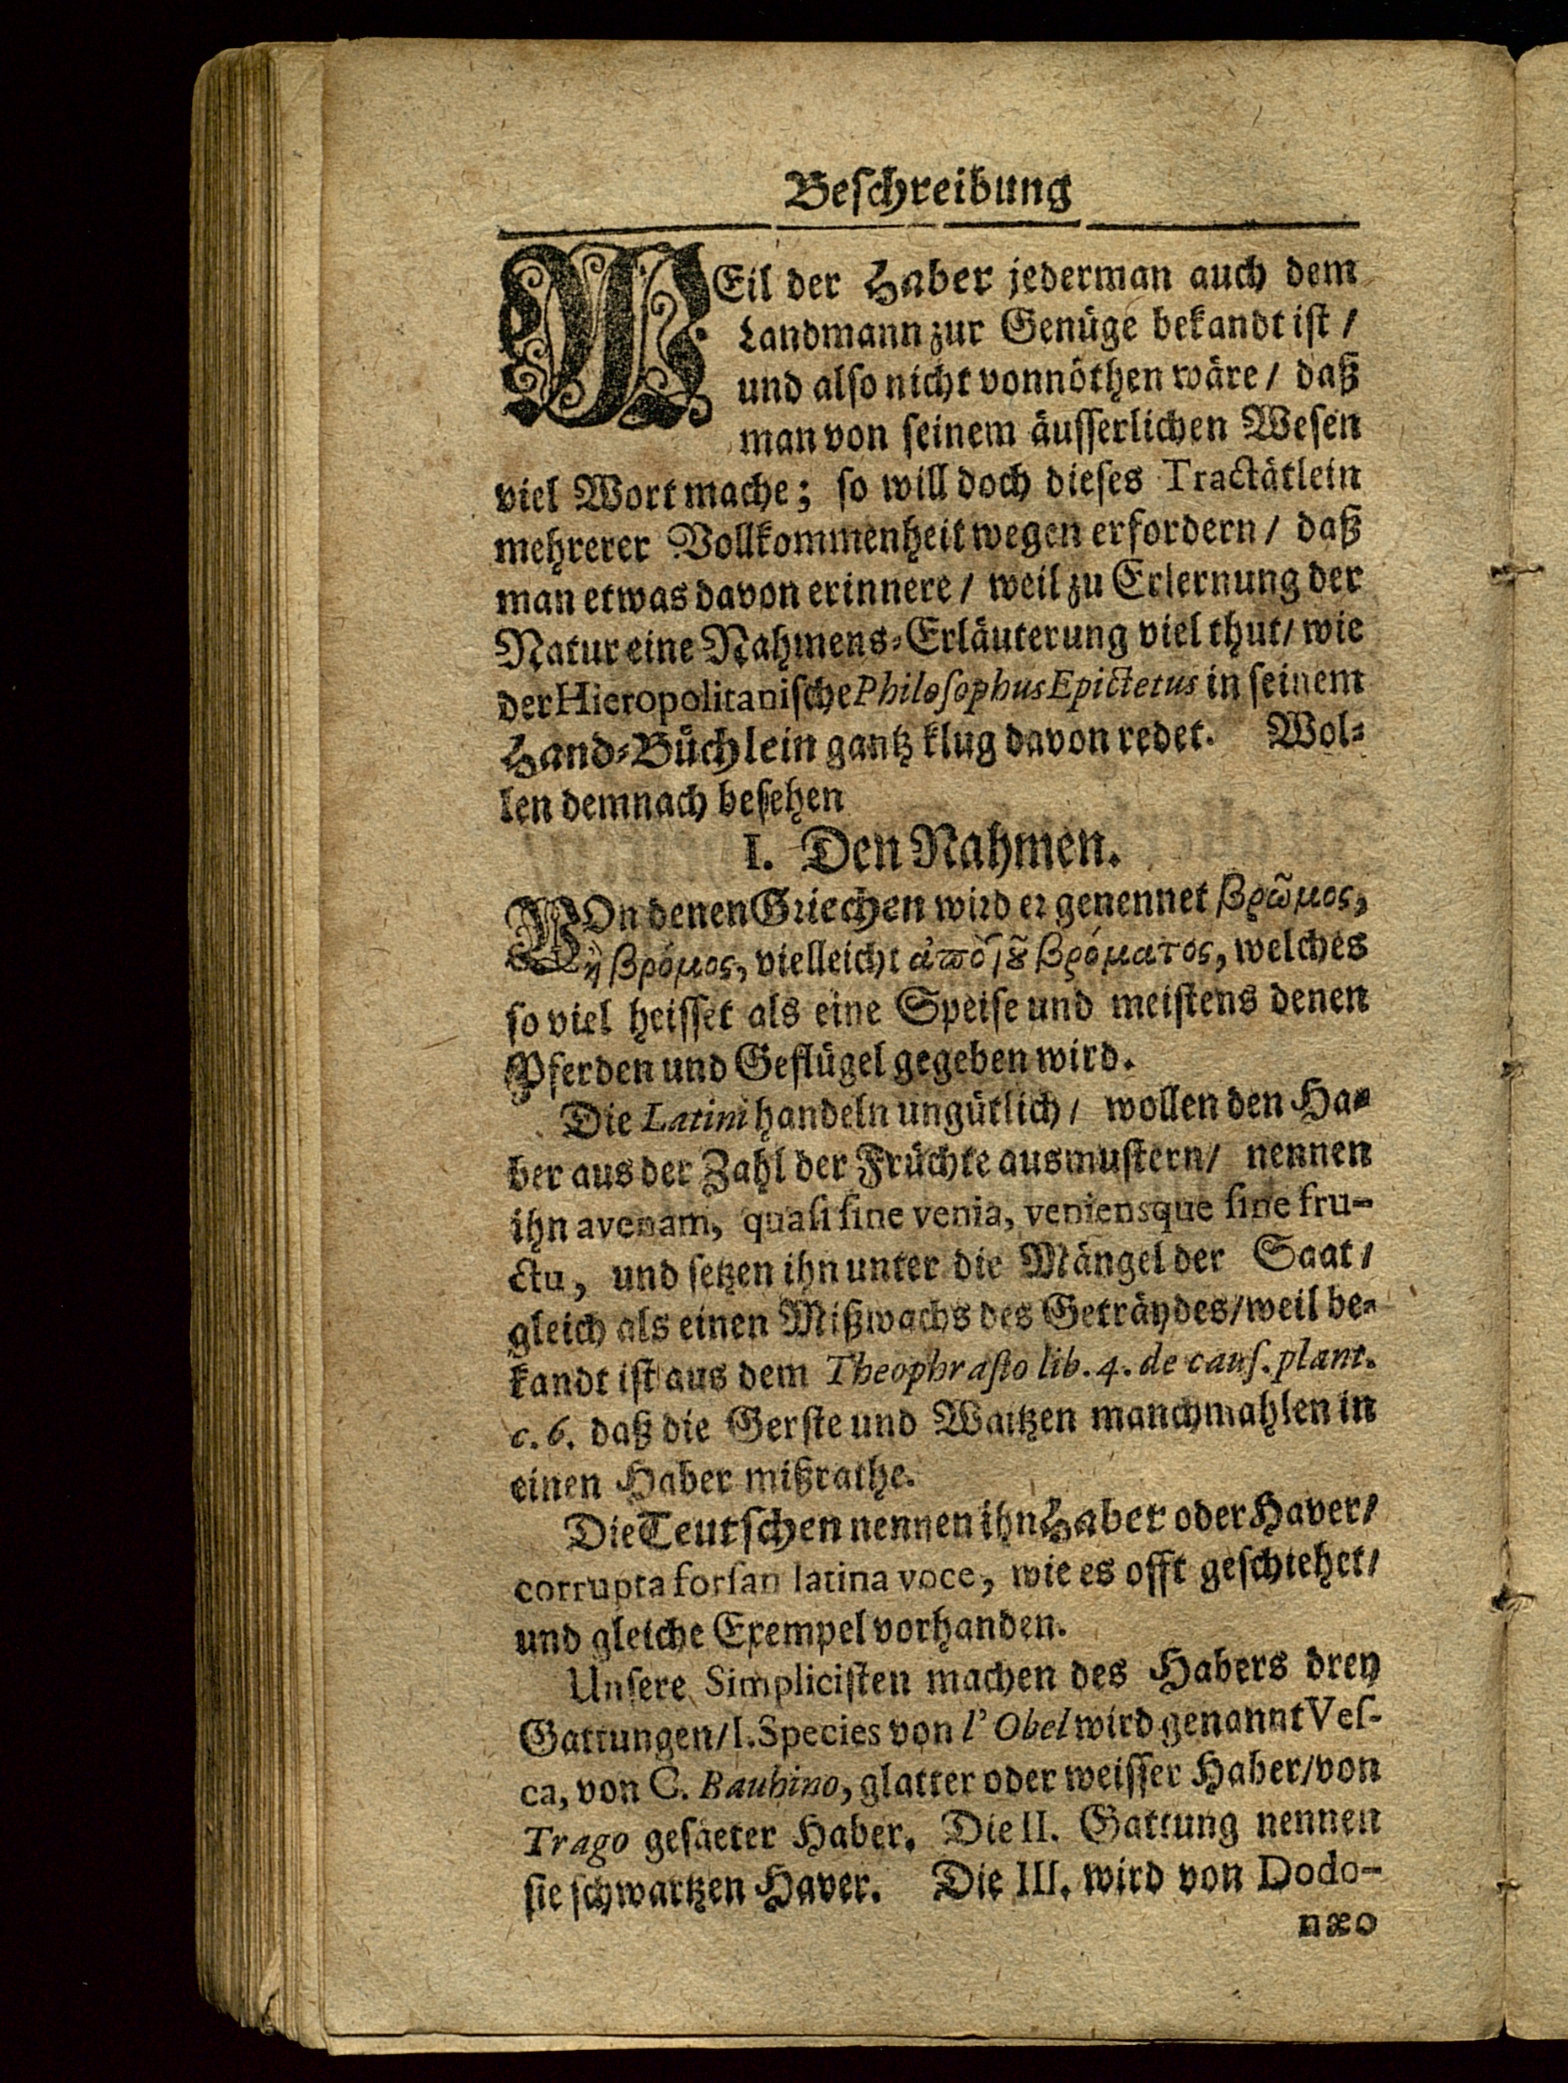 Beschreibung
WEil der Haber jederman auch dem
Landmann zur Genüge bekandt ist /
und also nicht vonnöthen wäre / daß
man von seinem äusserlichen Wesen
viel Wort mache; so will doch dieses Tractätlein
mehrerer Vollkommenheit wegen erfordern / daß
man etwas davon erinnere / weil zu Erlernung der
Natur eine Nahmens-Erläuterung viel thut / wie
der Hieropolitanische Philosophus Epictetus in seinem
Hand-Büchlein gantz klug davon redet. Wol-
len demnach besehen
I. Den Nahmen.
VOn denen Griechen wird er genennet βρῶμος,
ἢ βρόμος, vielleicht ἀπὸ τοῦ βρόματος, welches
so viel heisset als eine Speise und meistens denen
Pferden und Geflügel gegeben wird.
Die Latini handeln ungütlich / wollen den Ha-
ber aus der Zahl der Früchte ausmustern / nennen
ihn avenam, quasi sine venia, veniensque sine fru-
ctu, und setzen ihn unter die Mängel der Saat /
gleich als einen Mißwachs des Geträydes / weil be-
kandt ist aus dem Theophrasto lib. 4. de caus. plant.
c. 6. daß die Gerste und Waitzen manchmahlen in
einen Haber mißrathe.
Die Teutschen nennen ihn Haber oder Haver /
corrupta forsan latina voce, wie es offt geschiehet /
und gleiche Exempel vorhanden.
Unsere Simplicisten machen des Habers drey
Gattungen / I. Species von l'Obel wird genannt Ves-
ca, von C. Bauhino, glatter oder weisser Haber / von
Trago gesäeter Haber. Die II. Gattung nennen
sie schwartzen Haver. Die III. wird von Dodo-
næo